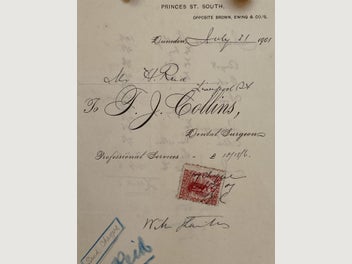 PRINCES ST. SOUTH,
OPPOSITE BROWN, EWING & CO'S.
Dunedin July 21 1901
Mr H. Reid
Liverpool St
To T. J. Collins,
Dental Surgeon
Professional Services £ 10/10/6.
By Cheque
With thanks
Paid